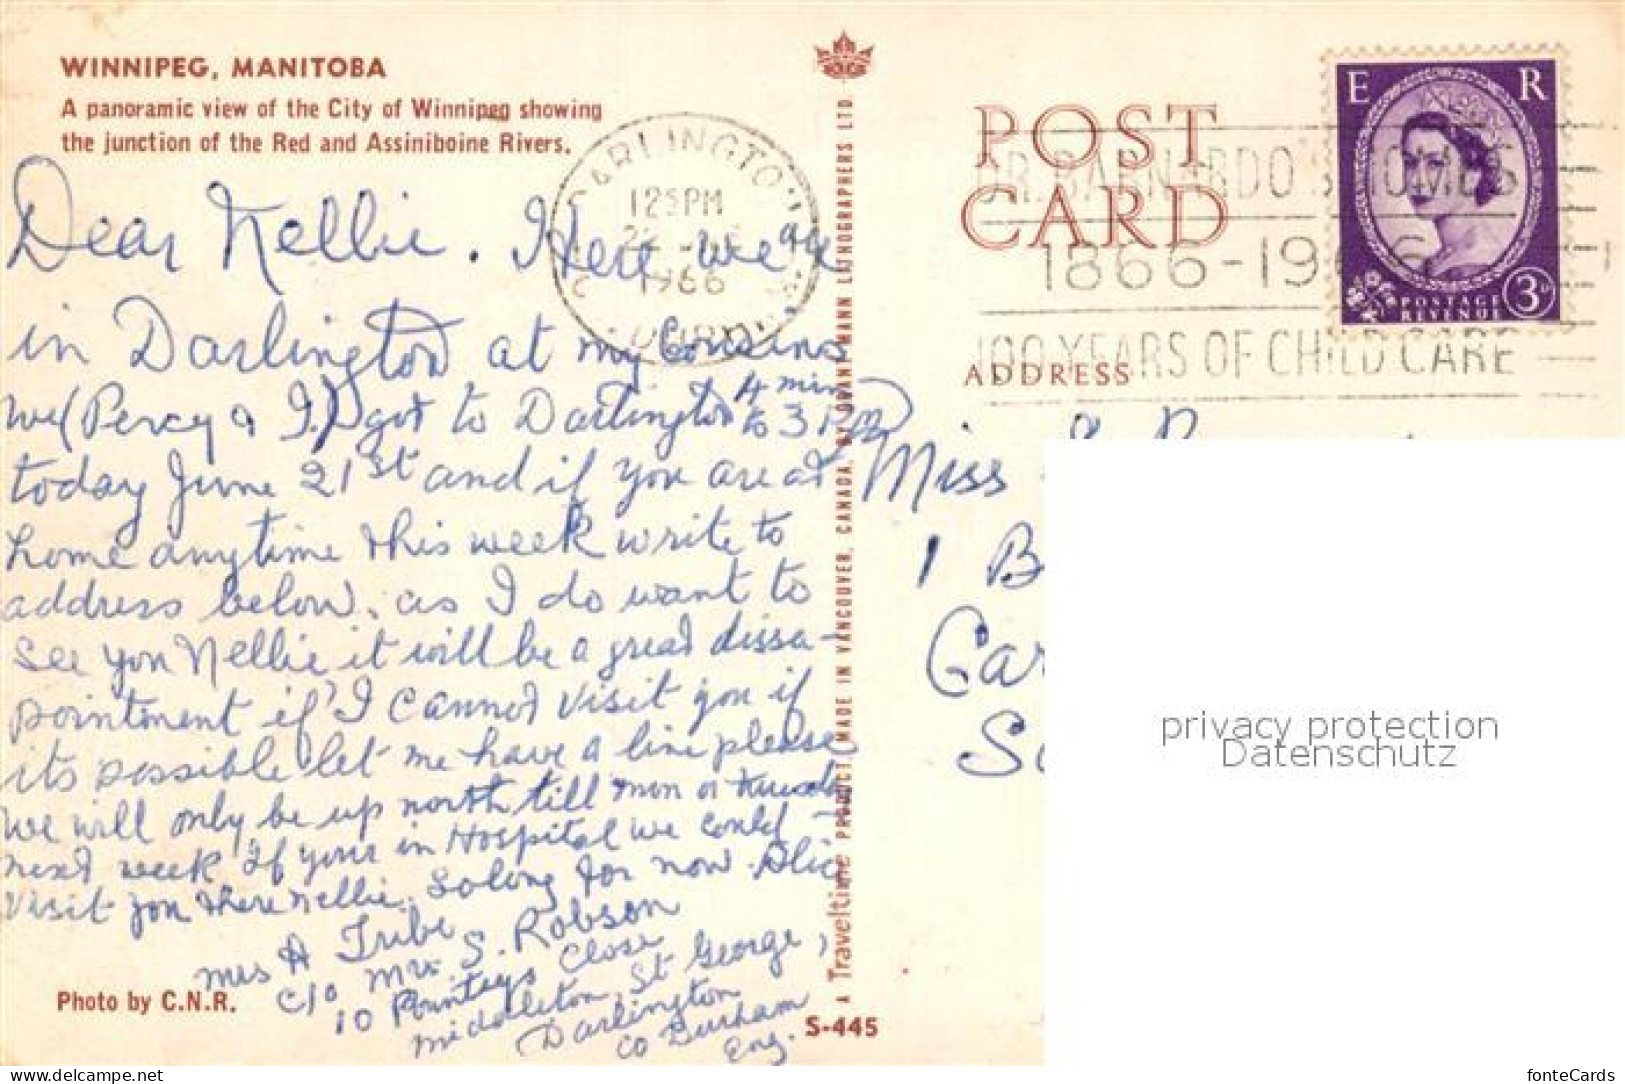 WINNIPEG, MANITOBA
A panoramic view of the City of Winnipeg showing
the junction of the Red and Assiniboine Rivers.
Dear Nellie. Here we are
in Darlington at my Cousins
we (Percy & I.) got to Darlington 4 min to 3 PM
today June 21st and if you are at
home anytime this week write to
address below, as I do want to
see you Nellie it will be a great dissa-
pointment if I cannot visit you if
its possible let me have a line please
we will only be up north till mon or
next week If your in Hospital we could -
visit you there Nellie. So long for now. Alice
Mrs A Tribe
c/o Mrs. S. Robson
10 Pounteys Close
Middleton, St George,
Darlington
Co Durham
Eng.
Photo by C.N.R.
S-445
A Traveltime PRODUCT, MADE IN VANCOUVER, CANADA, BY GRANT-MANN LITHOGRAPHERS LTD.
DARLINGTON
12 PM
22
1966
CO. DURHAM
POST
CARD
ADDRESS
DR. BARNARDO'S HOMES
1866-1966
100 YEARS OF CHILD CARE
E R
POSTAGE
REVENUE
3D
Miss
1 B
Gar
So
privacy protection
Datenschutz
delcampe.net
fonteCards